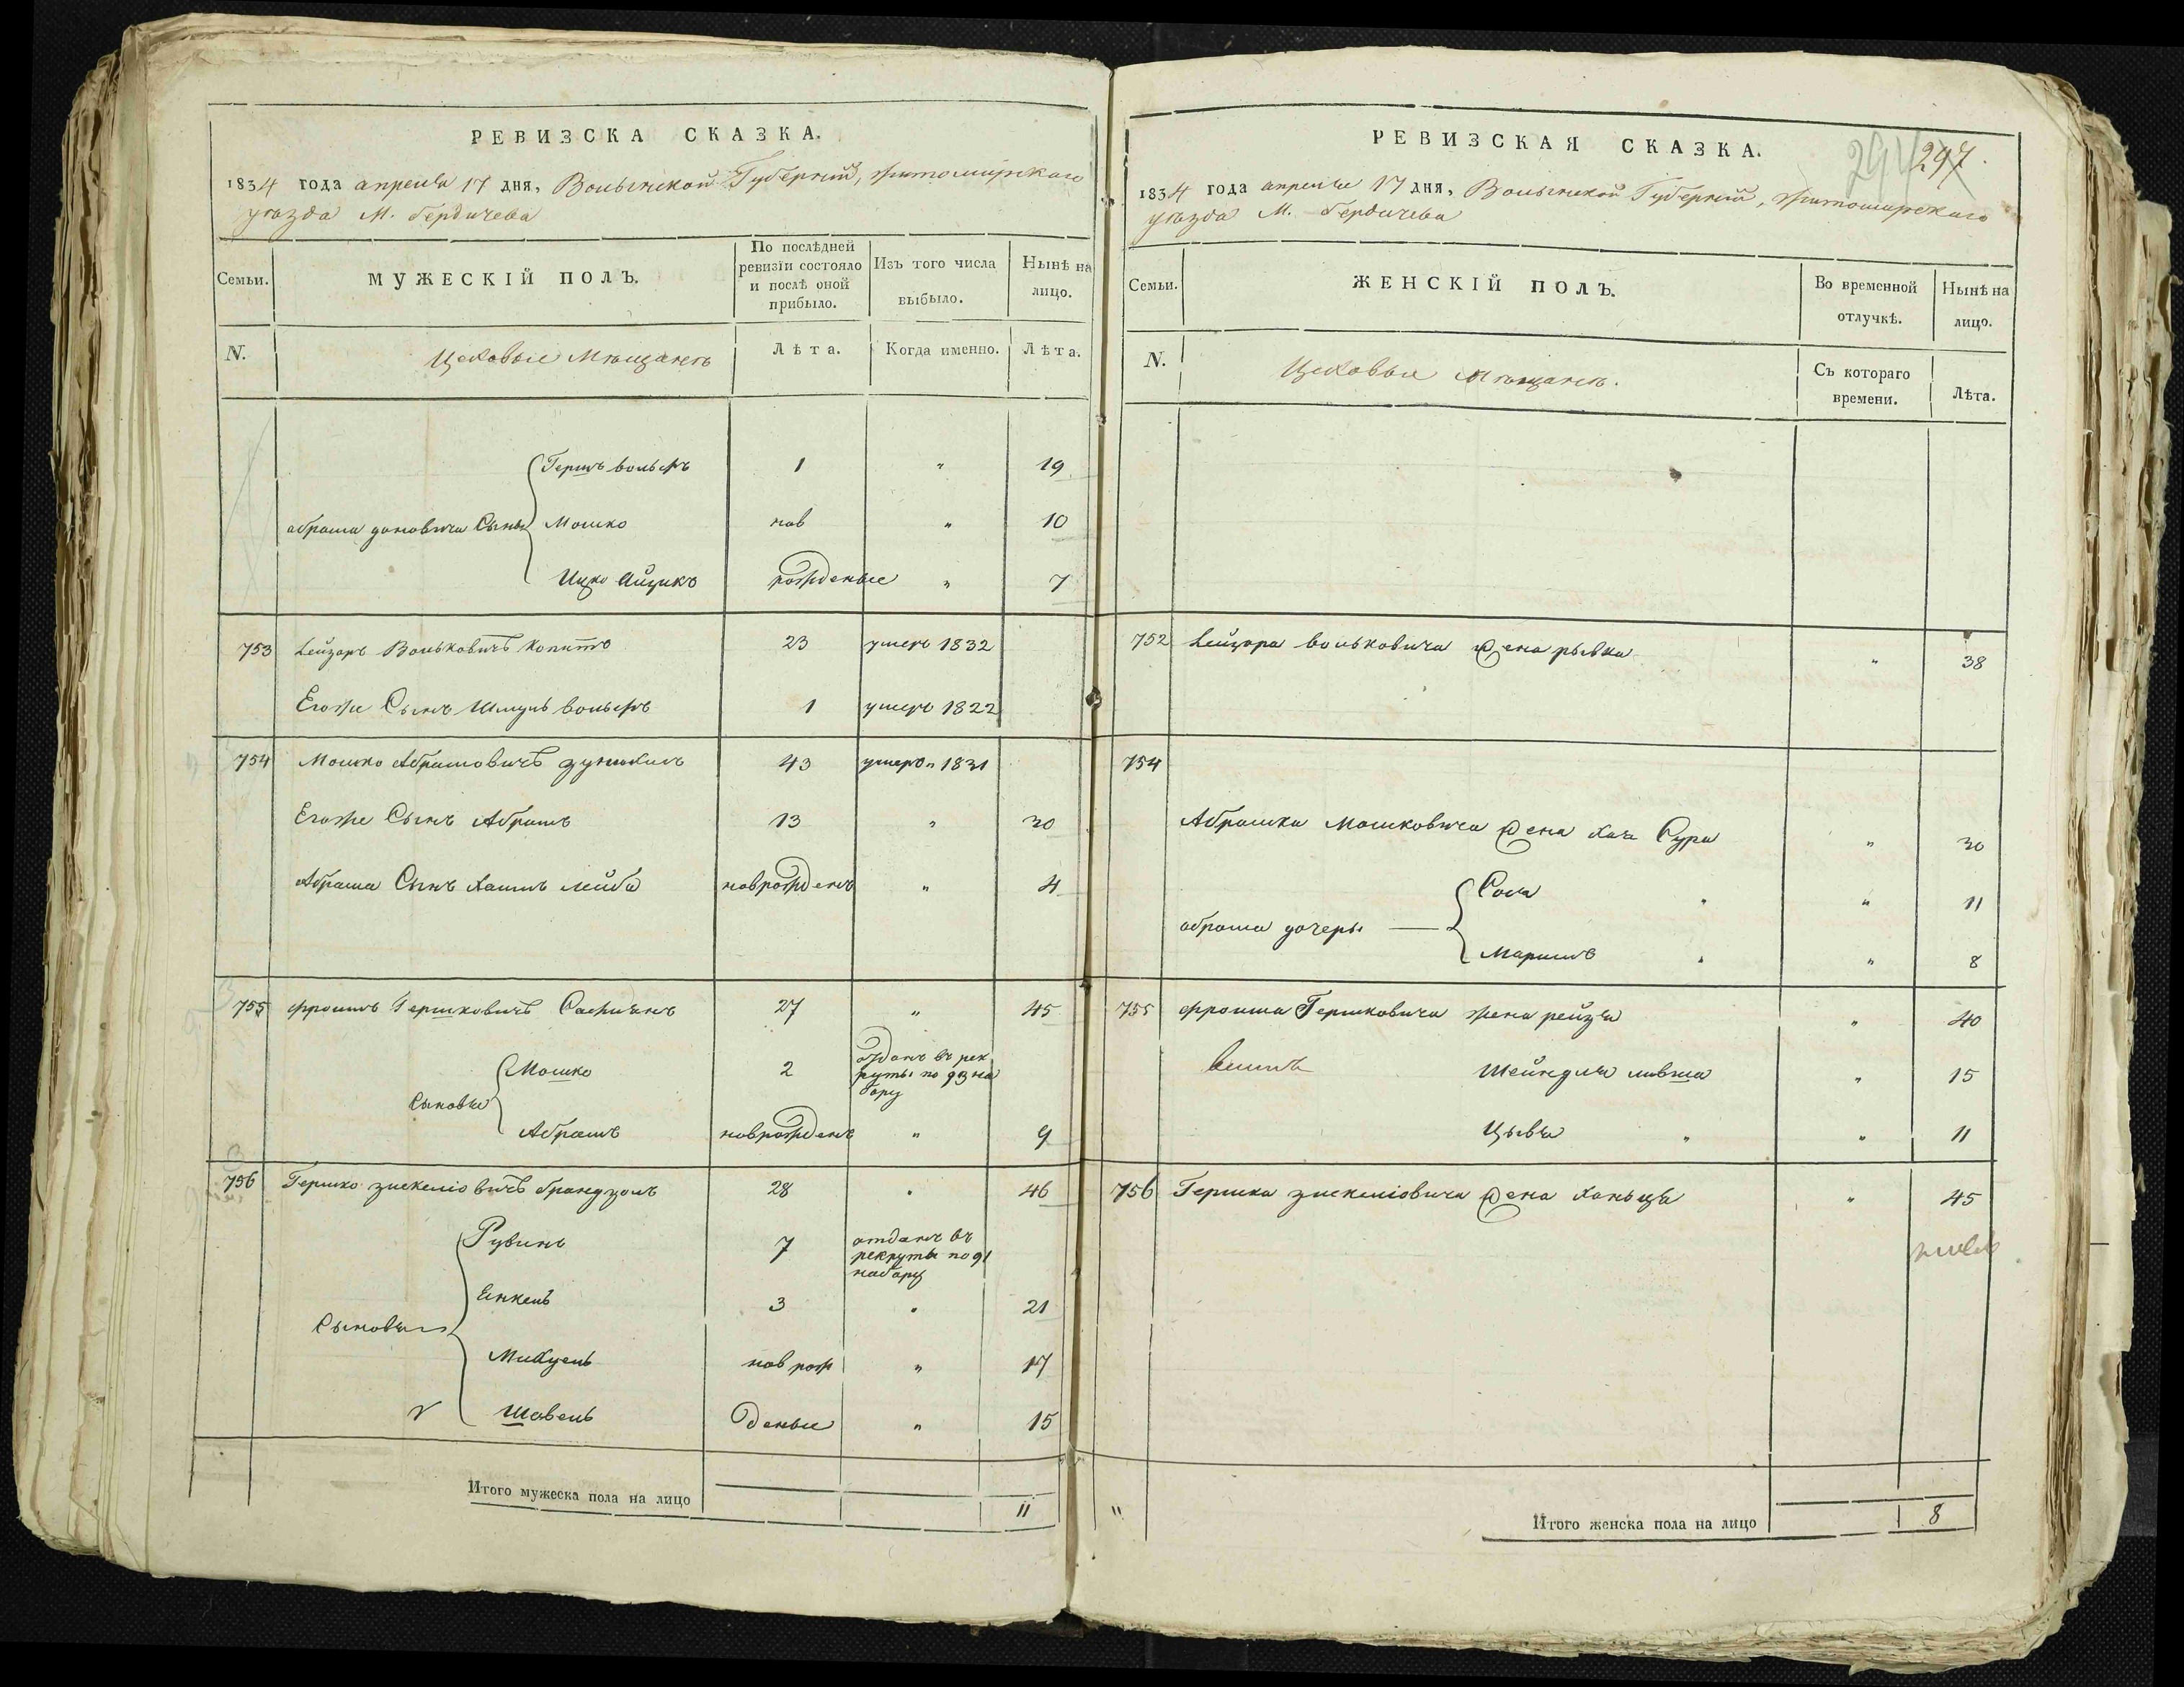 РЕВИЗСКА СКАЗКА.
1834 года апреля 17 дня, Волынской Губернии, житомирскаго
уезда М. бердичева
Семьи.
МУЖЕСКІЙ ПОЛЪ.
По послѣдней
ревизіи состояло
и послѣ оной
прибыло.
Изъ того числа
выбыло.
Нынѣ на
лицо.
N.
Цеховые Мещане
Лѣта.
Когда именно.
Лѣта.
Гершъ вольфъ 1 " 19
абрама Сыны Мошко нов " 10
Ицко Айзикъ рожденые " 7
753 Лейзоръ Вольковичъ 23 умеръ 1832
Егоже Сынъ Шмуль вольфъ 1 умеръ 1822
754 Мошко Абрамовичъ 43 умеръ " 1831
Егоже Сынъ Абрамъ 13 " 30
Абрама Сынъ Хаимъ лейба новрожденъ " 4
755 фроимъ Гершковичъ 27 " 45
Мошко 2 отданъ въ рек
руты по 93 на
бору
Сыновья
Абрамъ новрожденъ " 9
756 Гершко 28 " 46
Рувинъ 7 отданъ въ
рекруты по 91
набору
Енкель 3 " 21
Сыновья
Михуель нов рож " 17
Шавель деные " 15
Итого мужеска пола на лицо 11
РЕВИЗСКАЯ СКАЗКА.
297.
1834 года апреля 17 дня, Волынской Губернии, житомирскаго
уезда М. бердичева
Семьи.
ЖЕНСКІЙ ПОЛЪ.
Во временной
отлучкѣ.
Нынѣ на
лицо.
N.
Цеховые Мещане.
Съ котораго
времени.
Лѣта.
752 Лейзора вольковича жена рывка " 38
754
Абрамка Мошковича жена хая Сура " 30
Сося " 11
абрама дочеры
Маримъ " 8
755 фроима Гершковича жена рейзя " 40
Шейндля ливша " 15
Цывя " " 11
756 Гершка жена ханьця " 45
" Итого женска пола на лицо 8